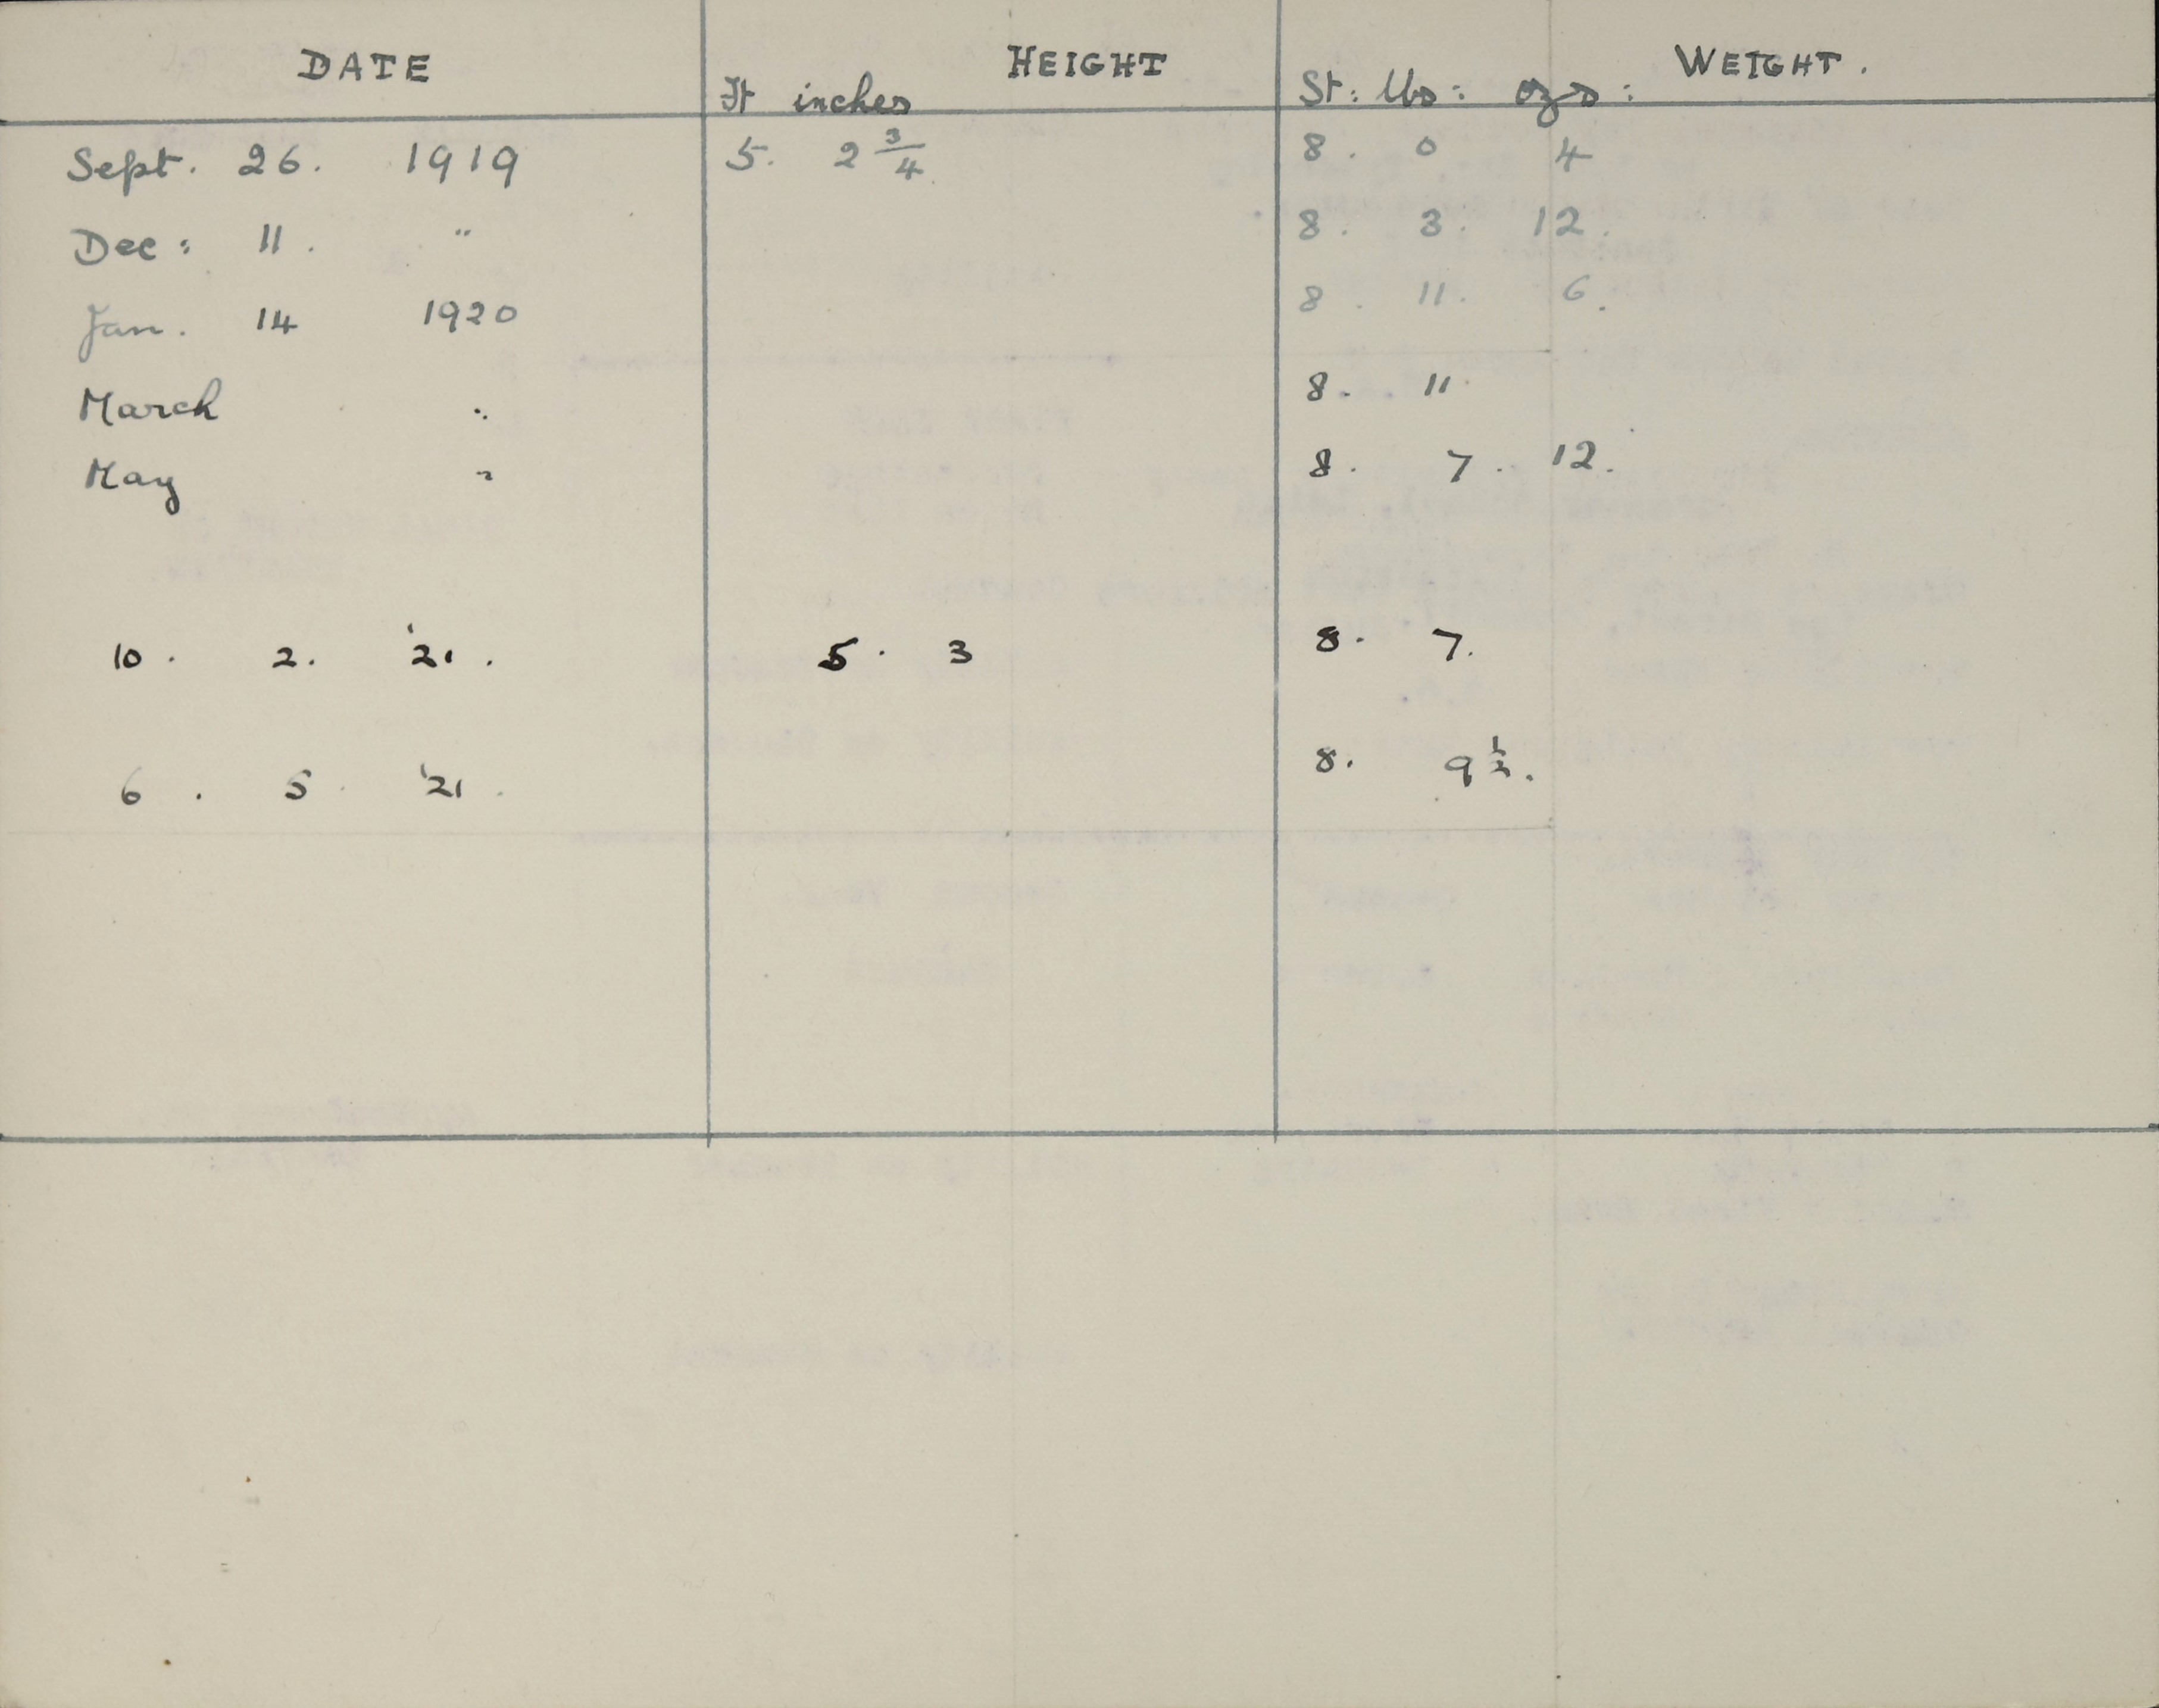 DATE HEIGHT WEIGHT.
Ft inches St: lbs: ozs:
Sept. 26. 1919 5. 2 3/4 8. 0 4
Dec: 11. " 8. 3. 12.
Jan. 14 1920 8. 11. 6.
March " 8. 11.
May " 8. 7. 12.
10. 2. '21. 5. 3 8. 7.
6. 5. '21. 8. 9 1/2.